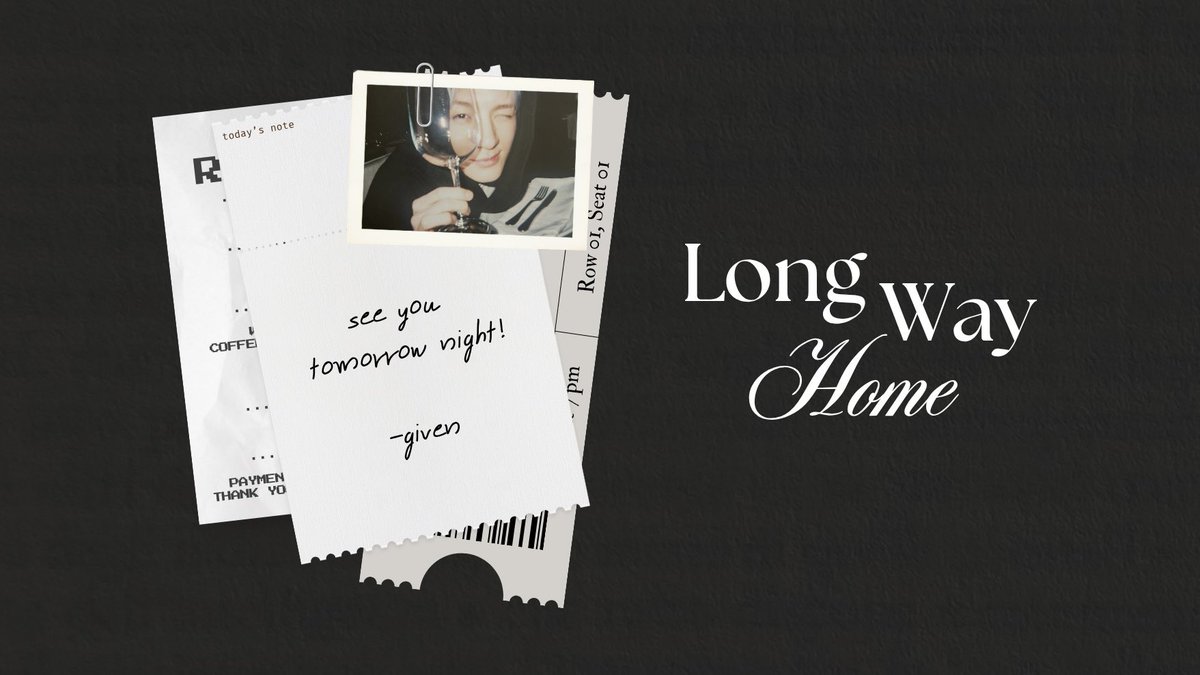 today's note
R
COFFE
PAYMEN
THANK YO
see you
tomorrow night!
-given
Row 01, Seat 01
7 pm
Long
Way
Home